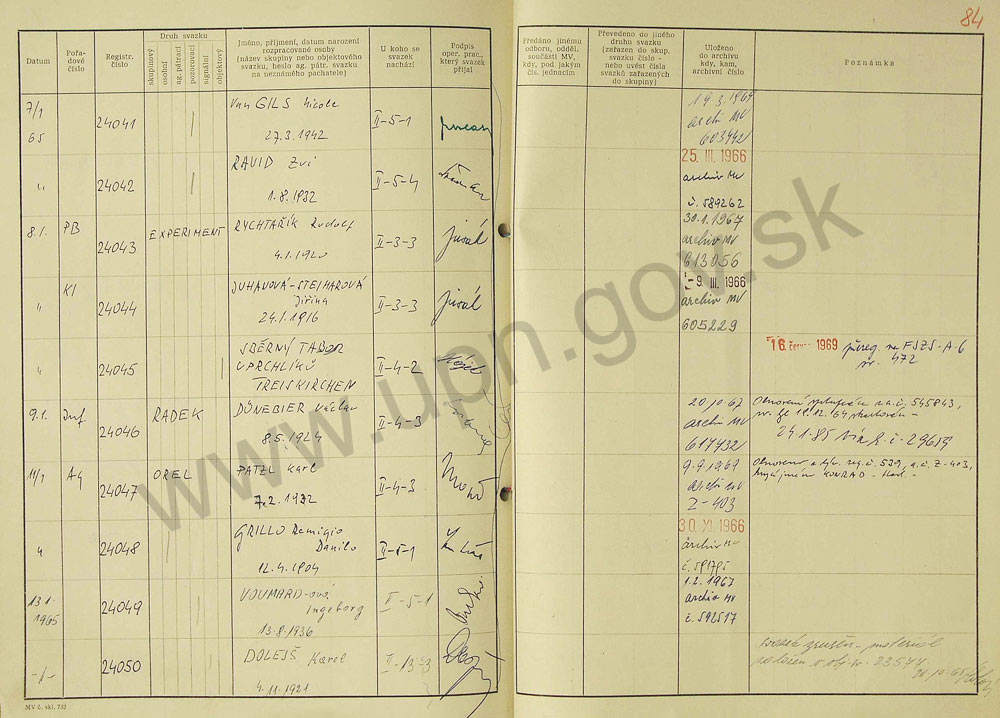 84
Datum
Pořa-
dové
číslo
Registr.
číslo
Druh svazku
skupinový
osobní
ag. pátrací
pozorovací
signální
objektový
Jméno, příjmení, datum narození
rozpracované osoby
(název skupiny nebo objektového
svazku, heslo ag. pátr. svazku
na neznámého pachatele)
U koho se
svazek
nachází
Podpis
oper. prac.,
který svazek
přijal
Předáno jinému
odboru, odděl.
součásti MV,
kdy, pod jakým
čís. jednacím
Převedeno do jiného
druhu svazku
(zařazen do skup.
svazku číslo -
nebo uvést čísla
svazků zařazených
do skupiny)
Uloženo
do archivu
kdy, kam,
archivní číslo
Poznámka
7/1
65
24041
Van GILS Nicole
27.3.1942
II-5-1
19.3.1969
archiv MV
603442
"
24042
RAVID Zvi
1.8.1932
II-5-4
25. III. 1966
archiv MV
č. 589262
8.1.
PB
24043
EXPERIMENT
RYCHTAŘÍK Rudolf
4.1.1920
II-3-3
30.1.1967
archiv MV
613056
"
KI
24044
JUHANOVÁ-STEIMAROVÁ
Jiřina
24.1.1916
II-3-3
-9. III. 1966
archiv MV
605229
"
24045
SBĚRNÝ TÁBOR
UPRCHLÍKŮ
TREISKIRCHEN
II-4-2
16. červ. 1969
přereg. na FSZS-A-6
472
9.1.
Inf.
24046
RADEK
DÖNEBIER Václav
8.5.1924
II-4-3
20.10.67
archiv MV
617432
Obnovení spolupráce a.č. 545843,
24.1.85
11/1
Ag
24047
OREL
PATZL Karl
7.2.1932
II-4-3
9.9.1969
archiv MV
Z-403
Obnoveno reg. č. 539, a.č. Z-403,
krycí jméno KONRAD
"
24048
GRILLO Remigio
Danilo
12.4.1904
II-5-1
30. XI. 1966
archiv MV
č. 591795
13.1.
1965
24049
VOUMARD-ová
Ingeborg
13.8.1936
II-5-1
1.2.1967
archiv MV
č. 592517
-/-
24050
DOLEJŠ Karel
4.11.1921
svazek zrušen - materiál
založen v obj. sv. 23577
MV č. skl. 732
www.upn.gov.sk